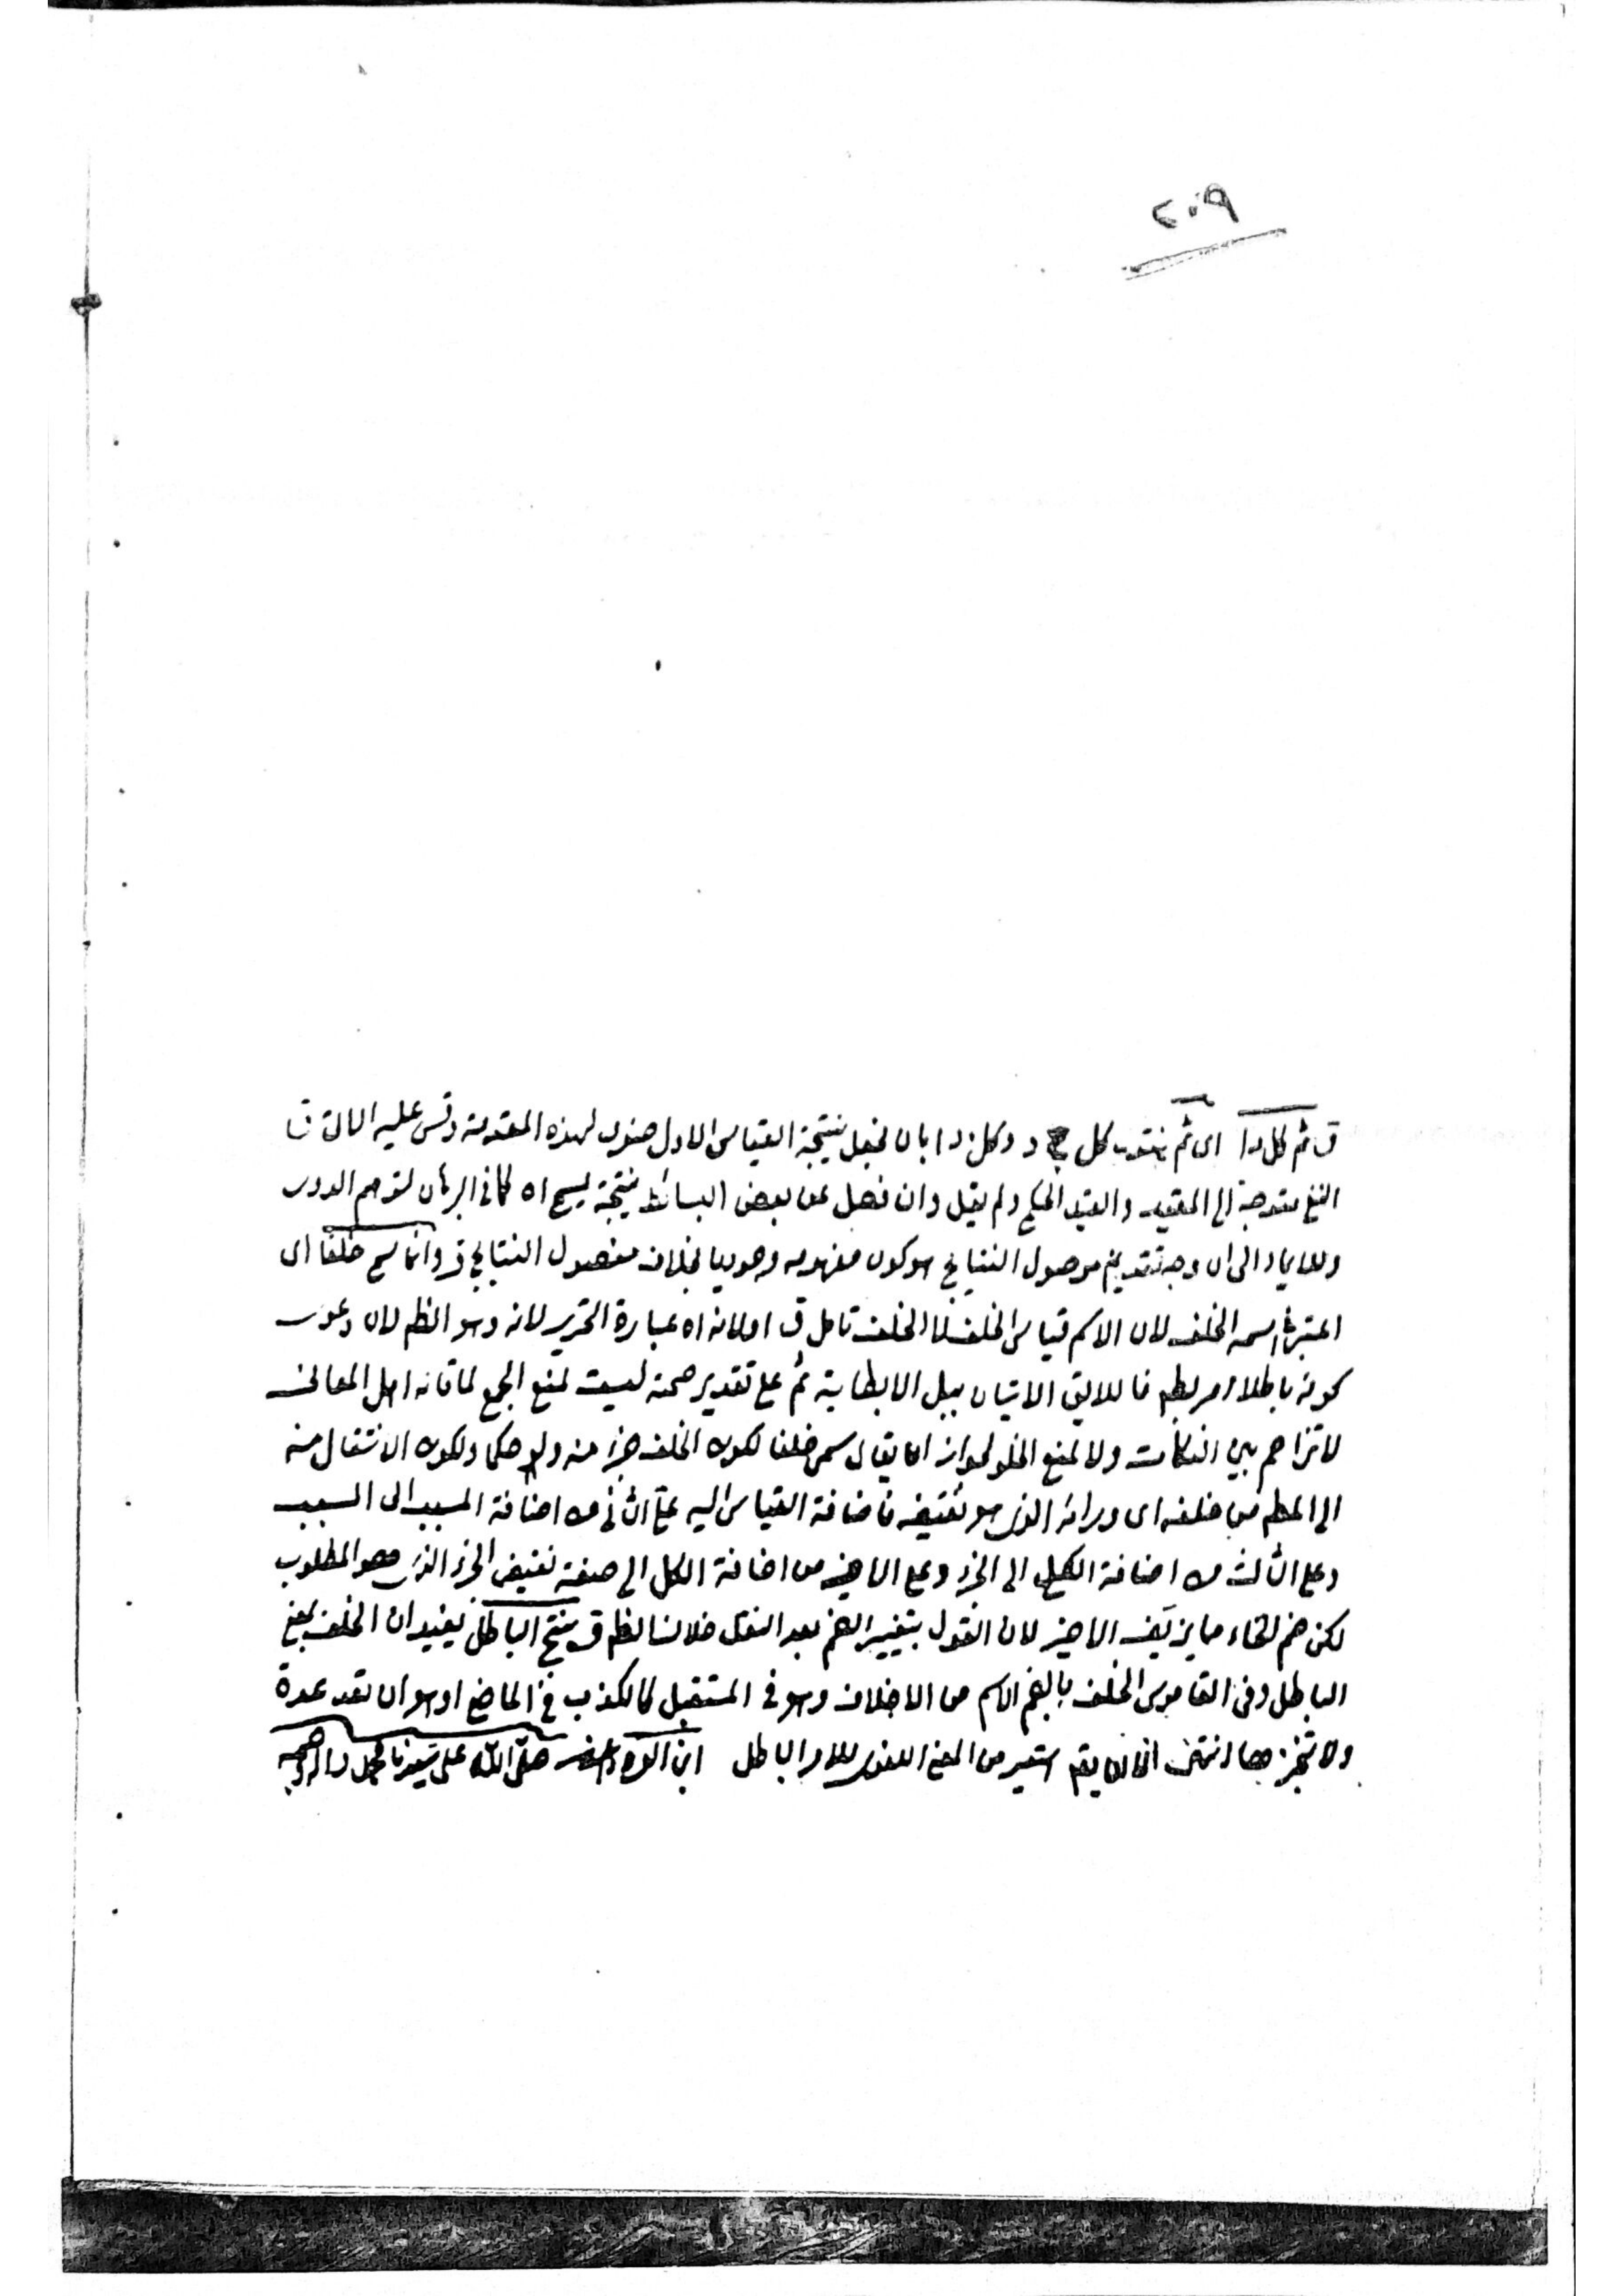 ٢٠٩
ق ثم كل د ا اى ثم نقول كل ج د وكل د ا بان نجعل نتيجة القياس الاول صغرى لهذه المقدمة وقس عليه الآتى ق
متوجها الى المقيد والقيد ولم يقل وان فصل عن بعض البسائط نتيجة يسمى اه كما فى البرهان لتوهم الدور
وللايماء الى ان وجه تقديم موصول النتايج هو كون مفهومه وجوديا بخلاف مفصول النتايج ق وانما سمى خلفا اى
اسمه الخلف لان الاسم قياس الخلف لا الخلف تامل ق اولانه اه عبارة التحرير لانه وهو الظم لان دعوى
كونه باطلا فاللايق الاتيان ببل الابطالية ثم على تقدير صحته ليست لمنع الجمع لما قاله اهل المعانى
لا تزاحم بين النكات ولا لمنع الخلو لجواز ان يقال سمى خلفا لكون الخلف جزء منه ولو حكما ولكون الانتقال منه
الى المطم من خلفه اى ورائه الذى هو نقيضه فاضافة القياس اليه على الثانى من اضافة المسبب الى السبب
وعلى الثالث من اضافة الكل الى الجزء وعلى الاخير من اضافة الكل الى صفة نقيض الجزء الذى هو المطلوب
لكن ضم الخاء مما يزيف الاخير لان القول بتغيير الضم بعد النقل خلاف الظم ق ينتج الباطل يفيد ان الخلف بمعنى
الباطل وفى القاموس الخلف بالضم الاسم من الاخلاف وهو فى المستقبل كالكذب فى الماضى او هو ان تعد عدة
ولا تنجزها انتهى استعير من المعنى اللغوى للامر الباطل ابن صلى الله على سيدنا محمد واله وصحبه